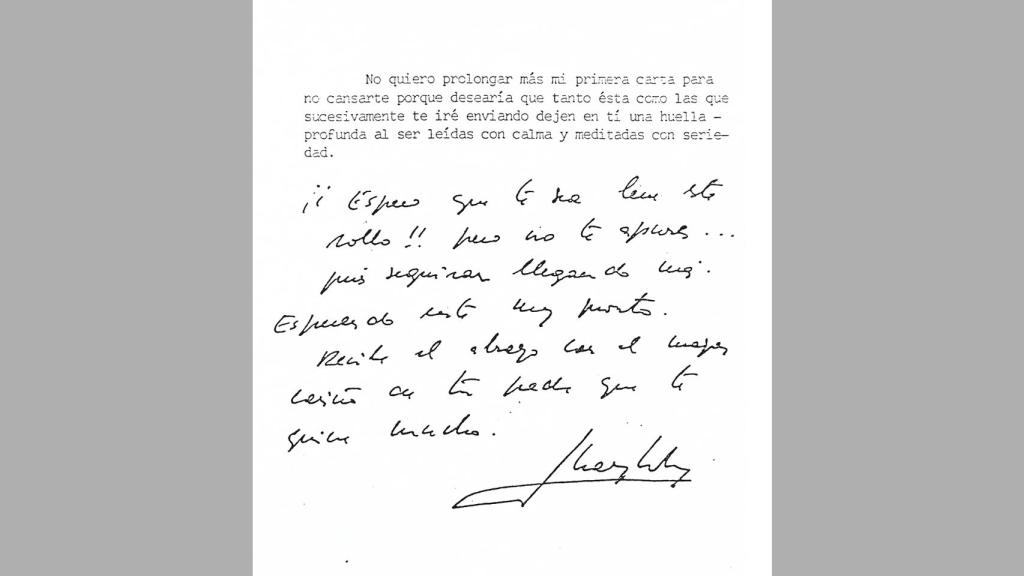 No quiero prolongar más mi primera carta para
no cansarte porque desearía que tanto ésta como las que
sucesivamente te iré enviando dejen en tí una huella -
profunda al ser leídas con calma y meditadas con serie-
dad.
¡¡ Espero que te sea leve este
rollo!! pero no te apures ...
pues seguiran llegando más.
Esperando verte muy pronto.
Recibe el abrazo con el mayor
cariño de tu padre que te
quiere mucho.